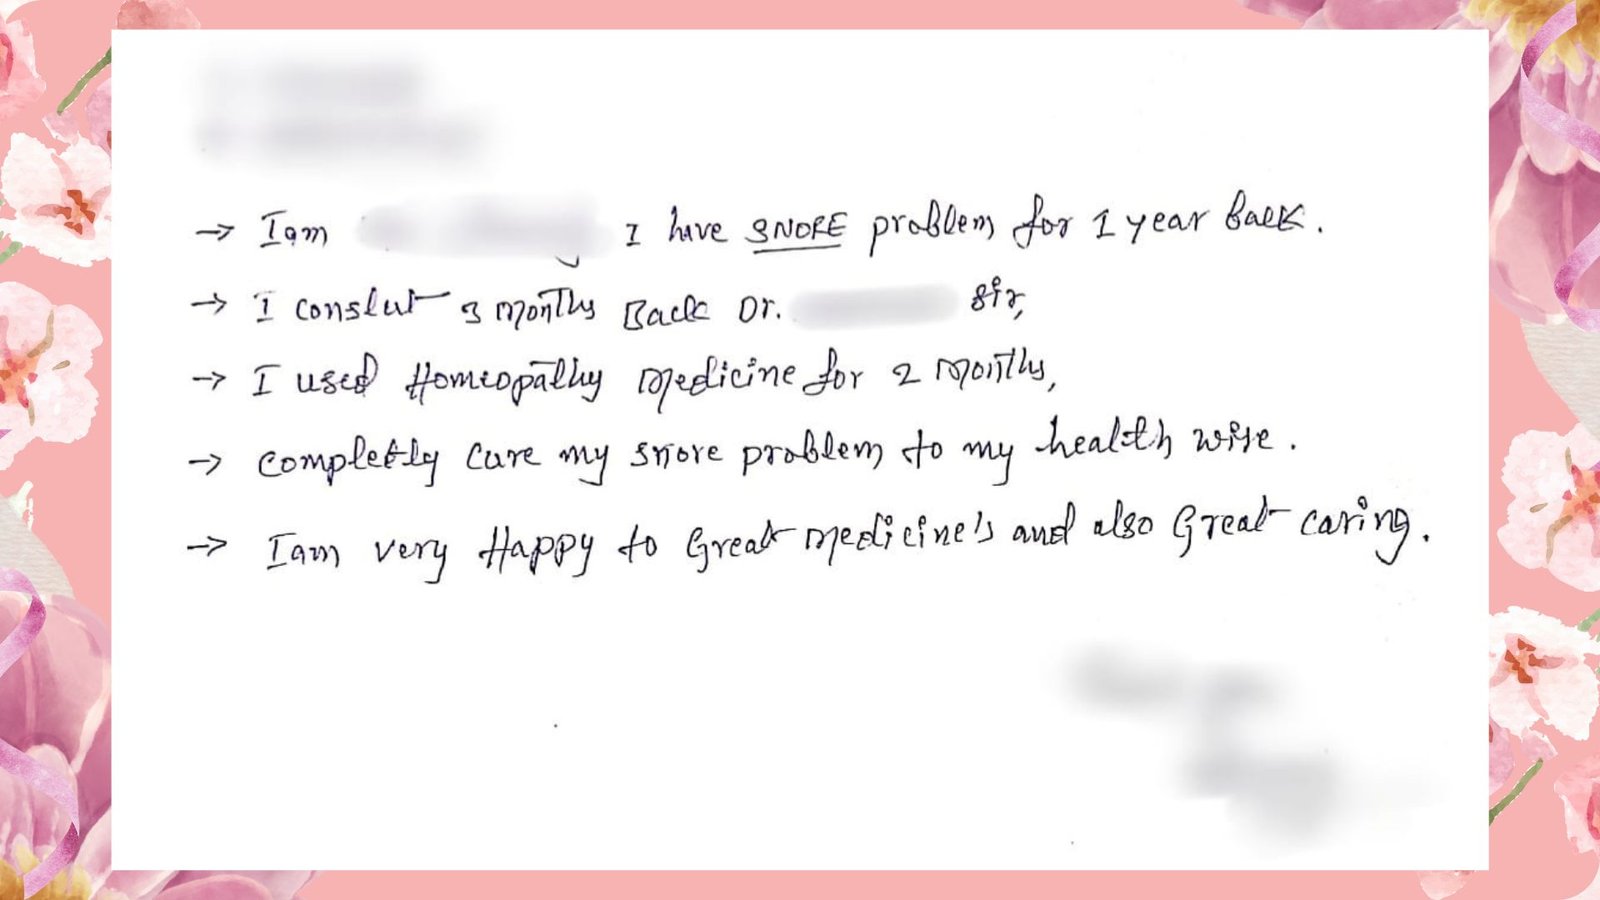 → Iam I have SNORE problem for 1 year back.
→ I conslut 3 months Back Dr. sir,
→ I used Homeopathy medicine for 2 months,
→ completly cure my snore problem to my health wise.
→ Iam very Happy to Great medicine's and also Great caring.